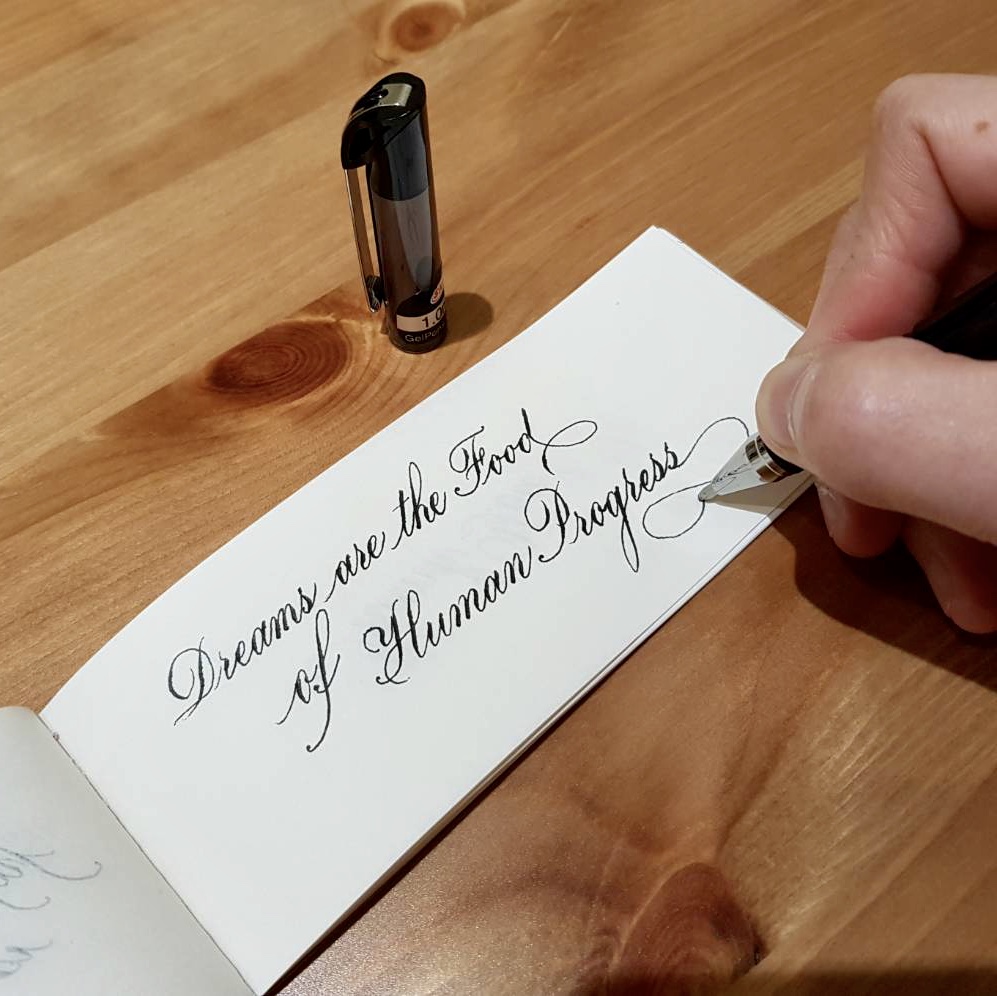 1.0
GelPen
Dreams are the Food
of Human Progress